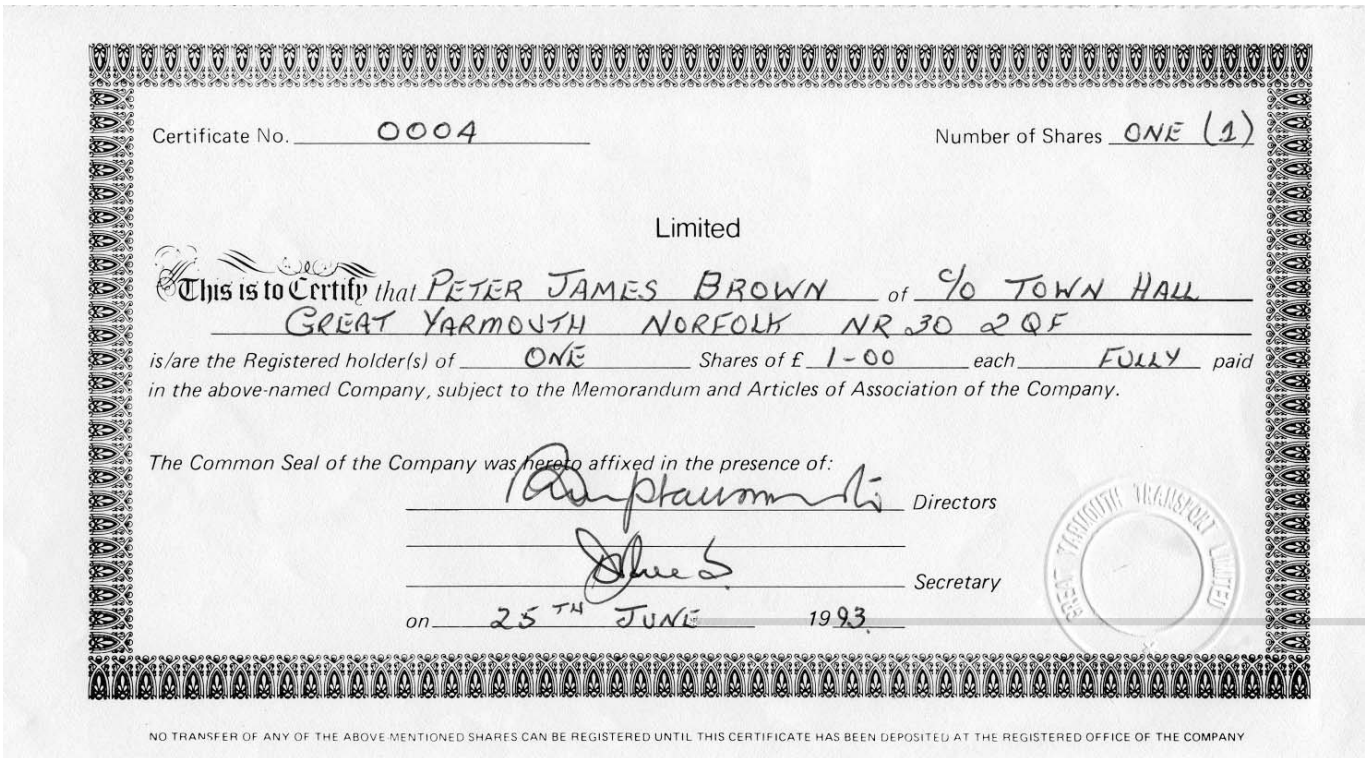 Certificate No. 0004 Number of Shares ONE (1)
Limited
This is to Certify that PETER JAMES BROWN of c/o TOWN HALL
GREAT YARMOUTH NORFOLK NR30 2QF
is/are the Registered holder(s) of ONE Shares of £ 1-00 each FULLY paid
in the above-named Company, subject to the Memorandum and Articles of Association of the Company.
The Common Seal of the Company was hereto affixed in the presence of:
Directors
Secretary
on 25TH JUNE 1993.
GREAT YARMOUTH TRANSPORT LIMITED
NO TRANSFER OF ANY OF THE ABOVE MENTIONED SHARES CAN BE REGISTERED UNTIL THIS CERTIFICATE HAS BEEN DEPOSITED AT THE REGISTERED OFFICE OF THE COMPANY